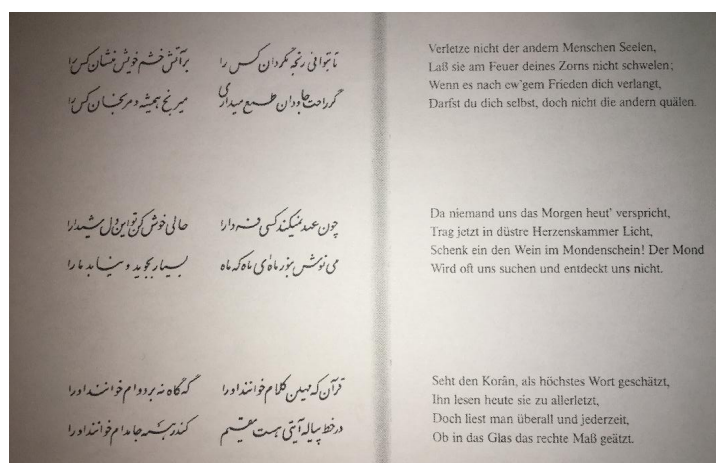 تا بتوانی رنجه مگردان کس را بر آتش خشم خویش منشان کس را
گر راحت جاودان طمع میداری میرنج همیشه و مرنجان کس را
چون عهد نمیکند کسی فردا را حالی خوش کن تو این دل شیدا را
می نوش بنور ماه ای ماه که ماه بسیار بجوید و نیابد ما را
قرآن که مهین کلام خوانند او را گه گاه نه بر دوام خوانند او را
در خط پیاله آیتی هست مقیم کندر همه جا مدام خوانند او را
Verletze nicht der andern Menschen Seelen,
Laß sie am Feuer deines Zorns nicht schwelen;
Wenn es nach ew'gem Frieden dich verlangt,
Darfst du dich selbst, doch nicht die andern quälen.
Da niemand uns das Morgen heut' verspricht,
Trag jetzt in düstre Herzenskammer Licht,
Schenk ein den Wein im Mondenschein! Der Mond
Wird oft uns suchen und entdeckt uns nicht.
Seht den Korân, als höchstes Wort geschätzt,
Ihn lesen heute sie zu allerletzt,
Doch liest man überall und jederzeit,
Ob in das Glas das rechte Maß geätzt.